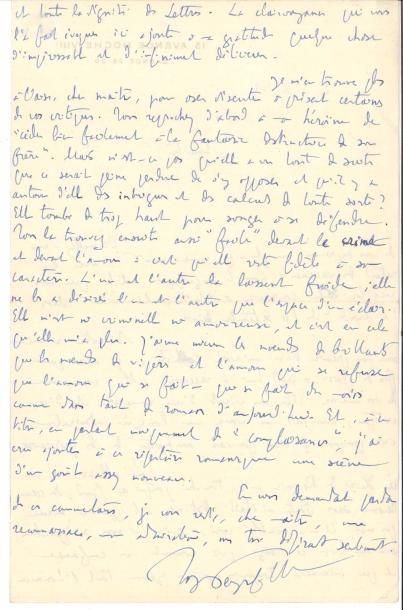 et toute la dignité des Lettres. La clairvoyance qui vous
l'a fait ajoute à ma gratitude quelque chose
d'impressif et d'infiniment délicieux.
Je m'en trouve plus
à l'aise, cher maître, pour oser discuter à présent certaines
de vos critiques. Vous reprochez d'abord à mon héroïne de
"céder bien facilement à la fantaisie destructrice de son
frère". Mais n'est-ce pas qu'elle a vu tout de suite
que ce serait peine perdue de s'y opposer et qu'il y a
autour d'elle des intrigues et des calculs de toute sorte ?
Elle tombe de trop haut pour songer à se défendre.
Vous la trouvez ensuite aussi "froide" devant le crime
et devant l'amour : c'est qu'elle reste fidèle à son
caractère. L'un et l'autre la laissent froide ; elle
ne les a désirés l'un et l'autre que l'espace d'un éclair.
Elle n'est ni criminelle ni amoureuse, et c'est en cela
qu'elle m'a plu. J'aime mieux les nœuds de brillants
que les nœuds de vipères et l'amour qui se refuse
que l'amour qui se fait — qui se fait
comme dans tant de romans d'aujourd'hui. Et,
titre, en parlant uniquement de "complaisances", j'ai
cru ajouter à ce répertoire romanesque une scène
d'un goût assez nouveau.
En vous demandant pardon
de ces commentaires, je vous redis, cher maître, ma
reconnaissance, mon admiration, mes très déférents sentiments.